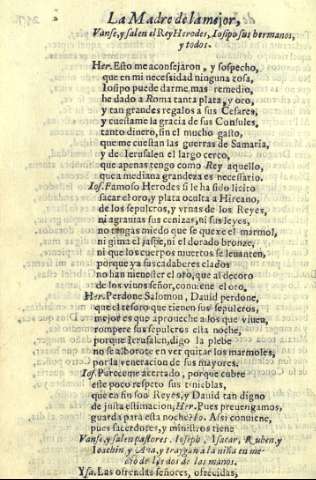 La Madre de la mejor,
Vanse, y salen el Rey Herodes, Iosipo sus hermanos,
y todos.
Her. Esto me aconsejaron, y sospecho,
que en mi necessidad ninguna cosa,
Iosipo puede darme, mas remedio,
he dado a Roma tanta plata, y oro,
y tan grandes regalos a sus Cesares,
y cuestame la gracia de sus Consules,
tanto dinero, sin el mucho gasto,
que me cuestan las guerras de Samaria,
y de Ierusalen el largo cerco,
que apenas tengo como Rey aquello,
que a mediana grandeza es necessario.
Ios. Famoso Herodes si le ha sido licito
sacar el oro, y plata oculta a Hircano,
de los sepulcros, y vrnas de los Reyes,
ni agrauias sus cenizas, ni sus leyes,
no tengas miedo que se quexe el marmol,
ni gima el jaspe, ni el dorado bronze,
ni que los cuerpos muertos se leuanten,
porque ya sus cadaberes elados
no han menester el oro, que al decoro
de los viuos señor, conuiene el oro,
Her. Perdone Salomon, Dauid perdone,
que el tesoro que tienen sus sepulcros,
mejor es que aproueche a los que viuen,
romperè sus sepulcros esta noche,
porque Ierusalen, digo la plebe
no se alborote en ver quitar los marmoles,
por la veneracion de sus mayores.
Ios. Pareceme acertado, porque cubre
este poco respeto sus tinieblas,
que en fin son Reyes, y Dauid tan digno
de justa estimacion, Her. Pues preuengamos,
guarda para esta noche. Io. Assi conuiene,
pues sacerdotes, y ministros tiene
Vanse, y salen pastores, Ioseph, Ysacar, Ruben, y
Ioachin, y Ana, y traygan a la niña en me-
dio de los dos de las manos.
Ysa. Las ofrendas señores, ofrecidas,